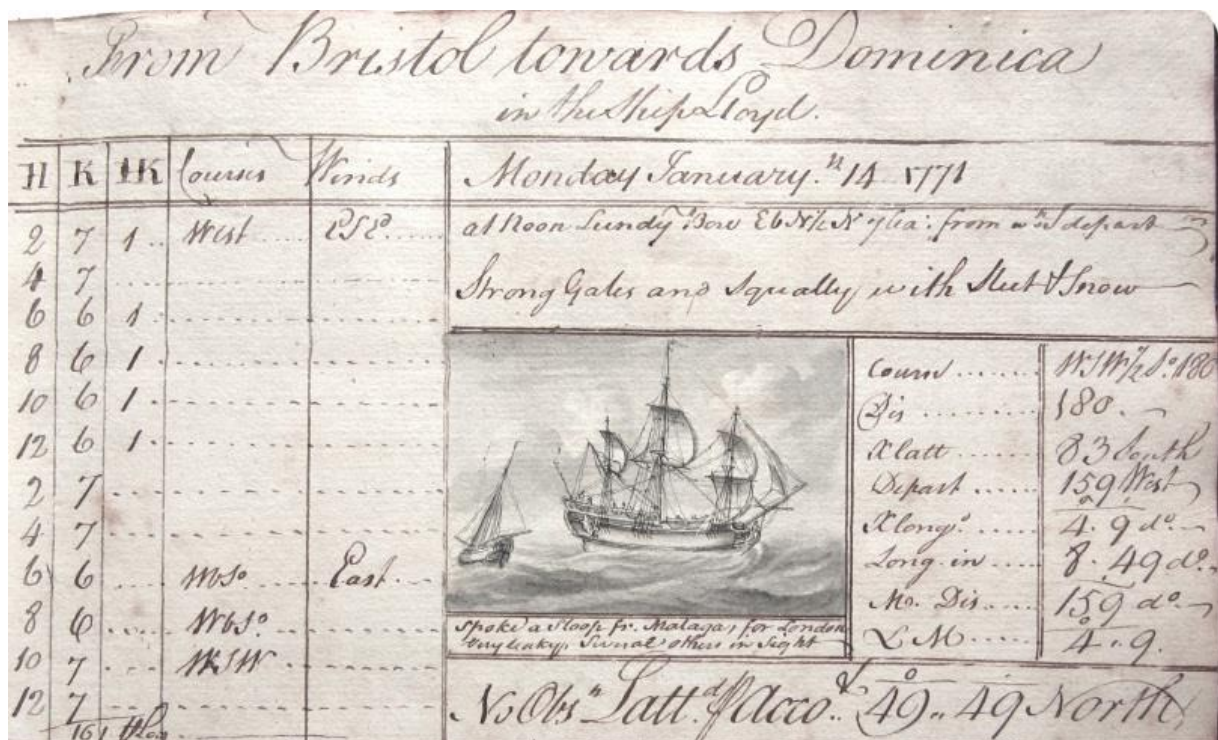 From Bristol towards Dominica
in the Ship Lloyd.
H K HK Courses Winds
2 7 1 West ESE
4 7
6 6 1
8 6 1
10 6 1
12 6 1
2 7
4 7
6 6 WbSo East
8 6 WbSo
10 7 WSW
12 7
161
Monday January 14 1771
at Noon Lundy Bore EbN1/2N from depart
Strong Gales and Squally with Sleet & Snow
Spoke a Sloop fr. Malaga, for London
Very leaky, Several others in Sight
Course WSW 1/2 So. 180
Dis 180.
X latt 83 South
Depart 159 West
X longo 4. 9 do.
Long in 8. 49 do.
Mr. Dis 159 do.
LM 4. 9.
No Obsn Lattd ⅌ Acco 49.. 49 North